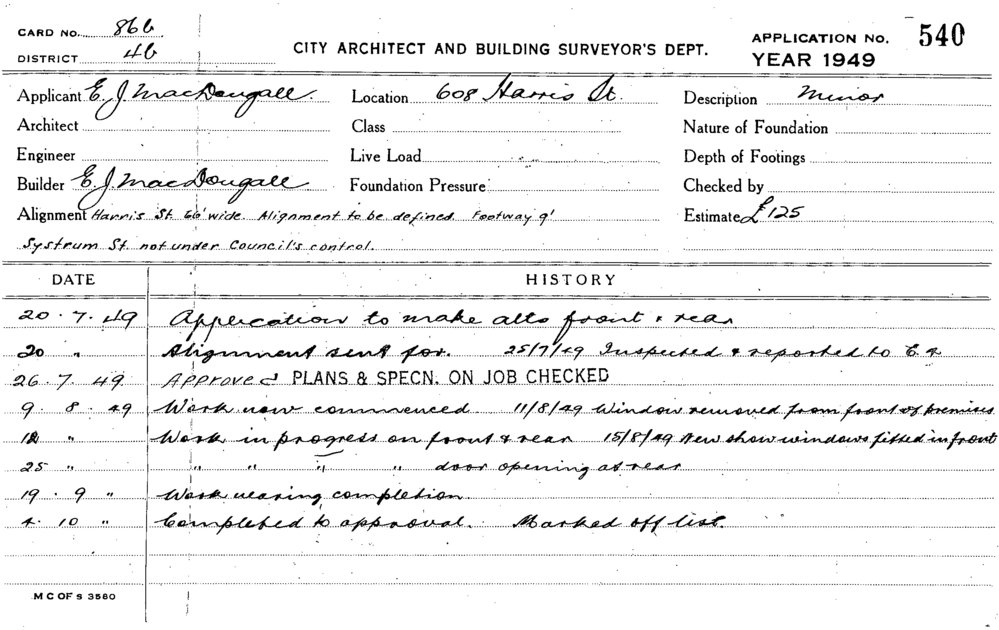 CARD NO. 866
DISTRICT 46
CITY ARCHITECT AND BUILDING SURVEYOR'S DEPT.
APPLICATION NO. 540
YEAR 1949
Applicant E. J. MacDougall. Location 608 Harris St. Description Minor
Architect Class Nature of Foundation
Engineer Live Load Depth of Footings
Builder E. J. MacDougall Foundation Pressure Checked by
Alignment Harris St. 66' wide. Alignment to be defined. Footway 9' Estimate £125
Systrum St. not under Council's control.
DATE HISTORY
20.7.49 Application to make alts front & rear
20 " Alignment sent for. 25/7/49 Inspected & reported to C.A.
26.7.49 APProved PLANS & SPECN. ON JOB CHECKED
9.8.49 Work now commenced 11/8/49 Window removed from front of premises
12 " Work in progress on front & rear 15/8/49 New show windows fitted in front
25 " " " " " door opening at rear
19.9 " Work nearing completion.
4.10 " Completed to approval. Marked off list.
M C OF S 3560